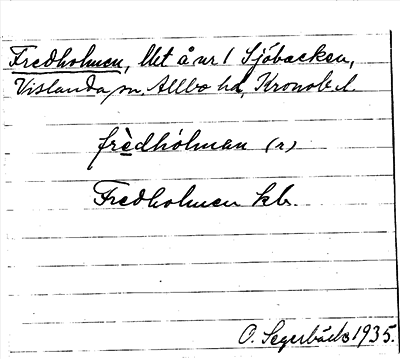 Fredholmen, lht å nr 1 Sjöbacken,
Vislanda sn, Allbo hd, Kronob. l.
frèdhólman (r)
Fredholmen kb.
O. Segerbäck 1935.